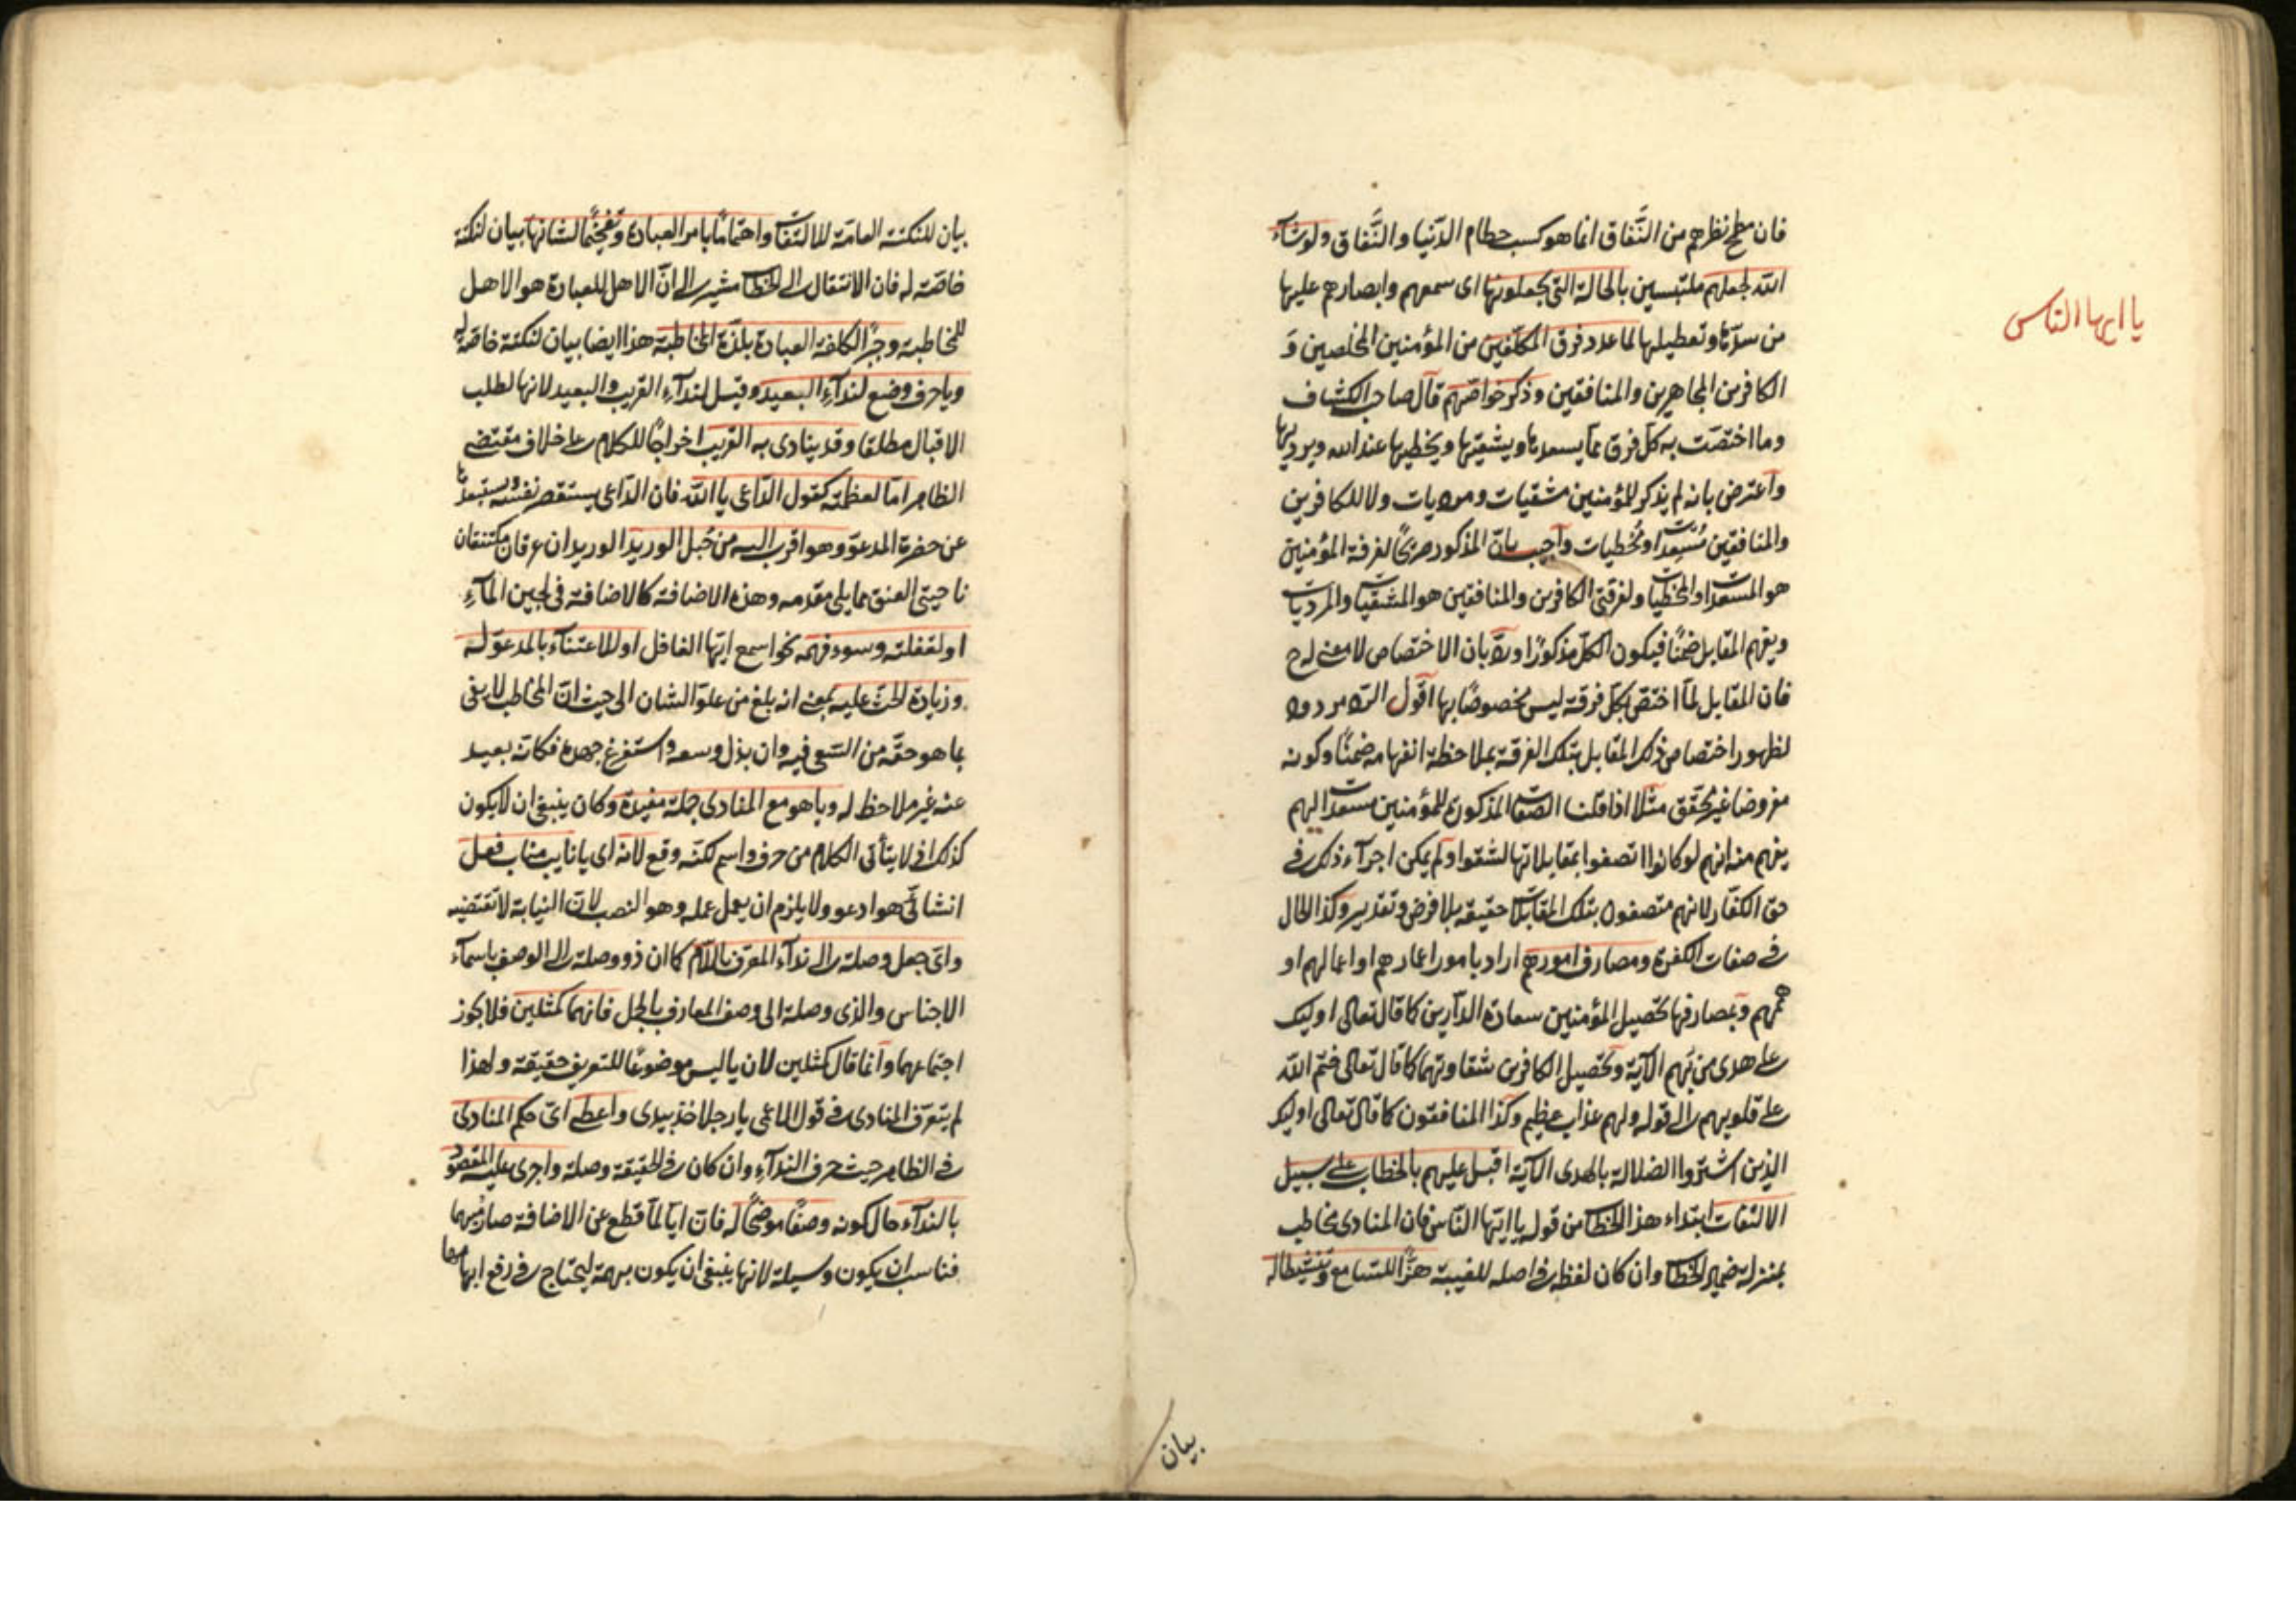 يا ايها الناس
فان مطمح نظرهم من النَّفاق انما هو كسب حطام الدّنيا والنَّفاق ولو شآء
الله لجعلهم ملتبسين بالحالة التى يجعلونها اى سمعهم وابصارهم عليها
من سدّها وتعطيلها لما عدد فرق المكلّفين من المؤمنين المخلصين وَ
الكافرين المجاهرين والمنافقين وذكر خواصّهم قال صاحب الكشاف
وما اختصّت به كلّ فرق ممّا يسعدها ويشقيها ويخطيها عند الله ويرديها
واعترض بانه لم يذكر للمؤمنين مشقيات ومرديات ولا للكافرين
والمنافقين مُسعدات ومُخطيات واجيب بانّ المذكور صريحًا لفرقة المؤمنين
هو المسعدات والمخطيات ولفرقتى الكافرين والمنافقين هو المشقيات والمرديات
ويفهم المقابل ضمنًا فيكون الكلّ مذكورًا وردّ بان الاختصاص لا معنى له ح
فان المقابل لمّا اختصّ بكلّ فرقة ليس مخصوصًا بها اقول الردّ مردود
لظهور اختصاص ذلك المقابل بتلك الفرقة بملاحظة انفهامه ضمنًا وكونه
مفروضا غير محقّق مثلا اذا قلنا الصّفات المذكورة للمؤمنين مسعدات لهم
يفهم منه انهم لو كانوا اتصفوا بمقابلاتها لشقوا ولم يمكن اجرآء ذلك فى
حق الكفّار لانهم متصفون بتلك المقابلات حقيقة بلا فرض وتقدير وكذا الحال
فى صفات الكفرة ومصارف امورهم اراد بامور اعمارهم او اعمالهم او
هممهم وبمصارفها تحصيل المؤمنين سعادة الدّارين كما قال تعالى اوليك
على هدى من ربّهم الآية وتحصيل الكافرين شقاوتهما كما قال تعالى ختم الله
على قلوبهم الى قوله ولهم عذاب عظيم وكذا المنافقون كما قال تعالى اوليك
الذين اشتروا الضلالة بالهدى الآية اقبل عليهم بالخطاب على سبيل
الالتفات ابتداء هذا الخطاب من قوله يا ايّها النّاس فان المنادى مخاطب
بمنزلة ضمير الخطاب وان كان لفظه فى اصله للغيبة هزًّا للسّامع وتنشيطا له
بيان
بيان للنكتة العامّة للالتفات واهتمامًا بامر العبادة وتفخيمًا لشانها بيان لنكتة
خاصّة له فان الانتقال الى الخطاب مشير الى انّ الاهل للعبادة هو الاهل
للمخاطبة وجبرًا لكلفة العبادة بلذّة المخاطبة هذا ايضا بيان لنكتة خاصّة له
ويا حرف وضع لندآء البعيد وقيل لندآء القريب والبعيد لانها لطلب
الاقبال مطلقا وقد ينادى به القريب اخراجًا للكلام على خلاف مقتضى
الظاهر امّا لعظمته كقول الدّاعى يا الله فان الدّاعى يستقصر نفسه ويستبعدها
عن حضرة المدعوّ وهو اقرب اليه من حبل الوريد الوريدان عرقان مكتنفان
ناحيتى العنق مما يلى مقدمه وهذه الاضافة كالاضافة فى لجين المآءِ
او لغفلته وسوء فهمه نحو اسمع ايّها الغافل او للاعتنآء بالمدعوّ له
وزيادة الحثّ عليه بمعنى انه بلغ من علوّ الشان الى حيث انّ المخاطب لا يفى
بما هو حقّه من السّعى فيه وان بذل وسعه واستفرغ جهده فكانّه بعيد
عنه غير ملاحظ له وياهو مع المنادى جملة مفيدة وكان ينبغى ان لا يكون
كذلك اذ لا يتأتى الكلام من حرف واسم لكنّه وقع لانه اى يا نايب مناب فعل
انشائىّ هو ادعو ولا يلزم ان يعمل عمله وهو النصب لانّ النيابة لا تقتضيه
واىّ جعل وصلة الى ندآء المعرّف باللّام كما ان ذو وصلة الى الوصف باسمآء
الاجناس والذى وصلة الى وصف المعارف بالجمل فانهما كمثلين فلا يجوز
اجتماعهما وانما قال كمثلين لان يا ليس موضوعًا للتعريف حقيقة ولهذا
لم يتعرّف المنادى فى قول الاعمى يا رجلا خذ بيدى واعطى اىّ حكم المنادى
فى الظاهر حيث حرف الندآء وان كان فى الحقيقة وصلة واجرى عليه المقصود
بالندآء حال كونه وصفًا موضحًا له فانّ ايّا لمّا قطع عن الاضافة صار مبهما
فناسب ان يكون وسيلة لانها ينبغى ان يكون مبهمة ليحتاج فى رفع ابهامها